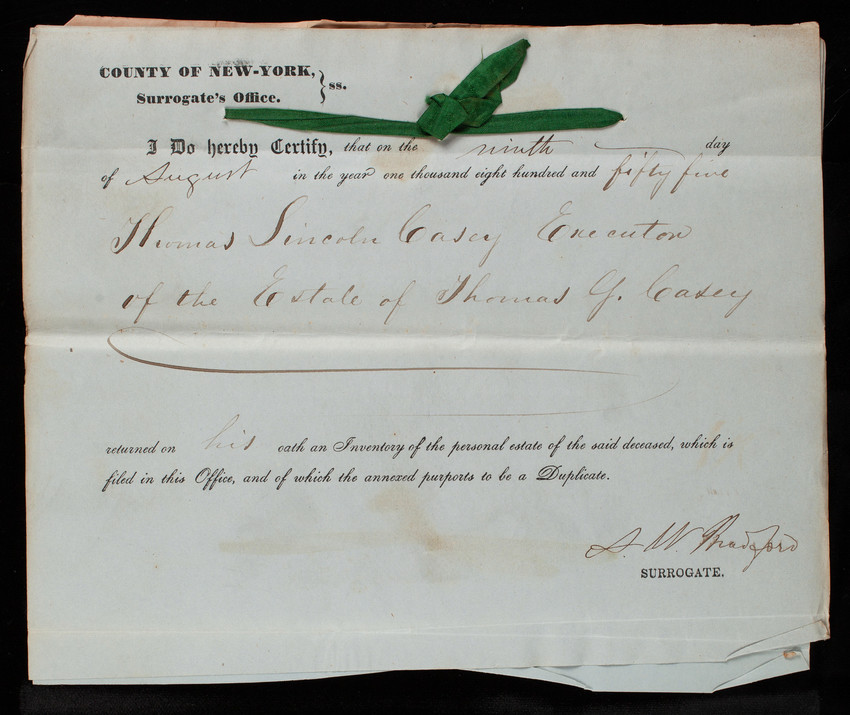 COUNTY OF NEW-YORK, } ss.
Surrogate's Office.
I Do hereby Certify, that on the ninth day
of August in the year one thousand eight hundred and fifty five
Thomas Lincoln Casey Executor
of the Estate of Thomas G. Casey
returned on his oath an Inventory of the personal estate of the said deceased, which is
filed in this Office, and of which the annexed purports to be a Duplicate.
A. W. Bradford
SURROGATE.